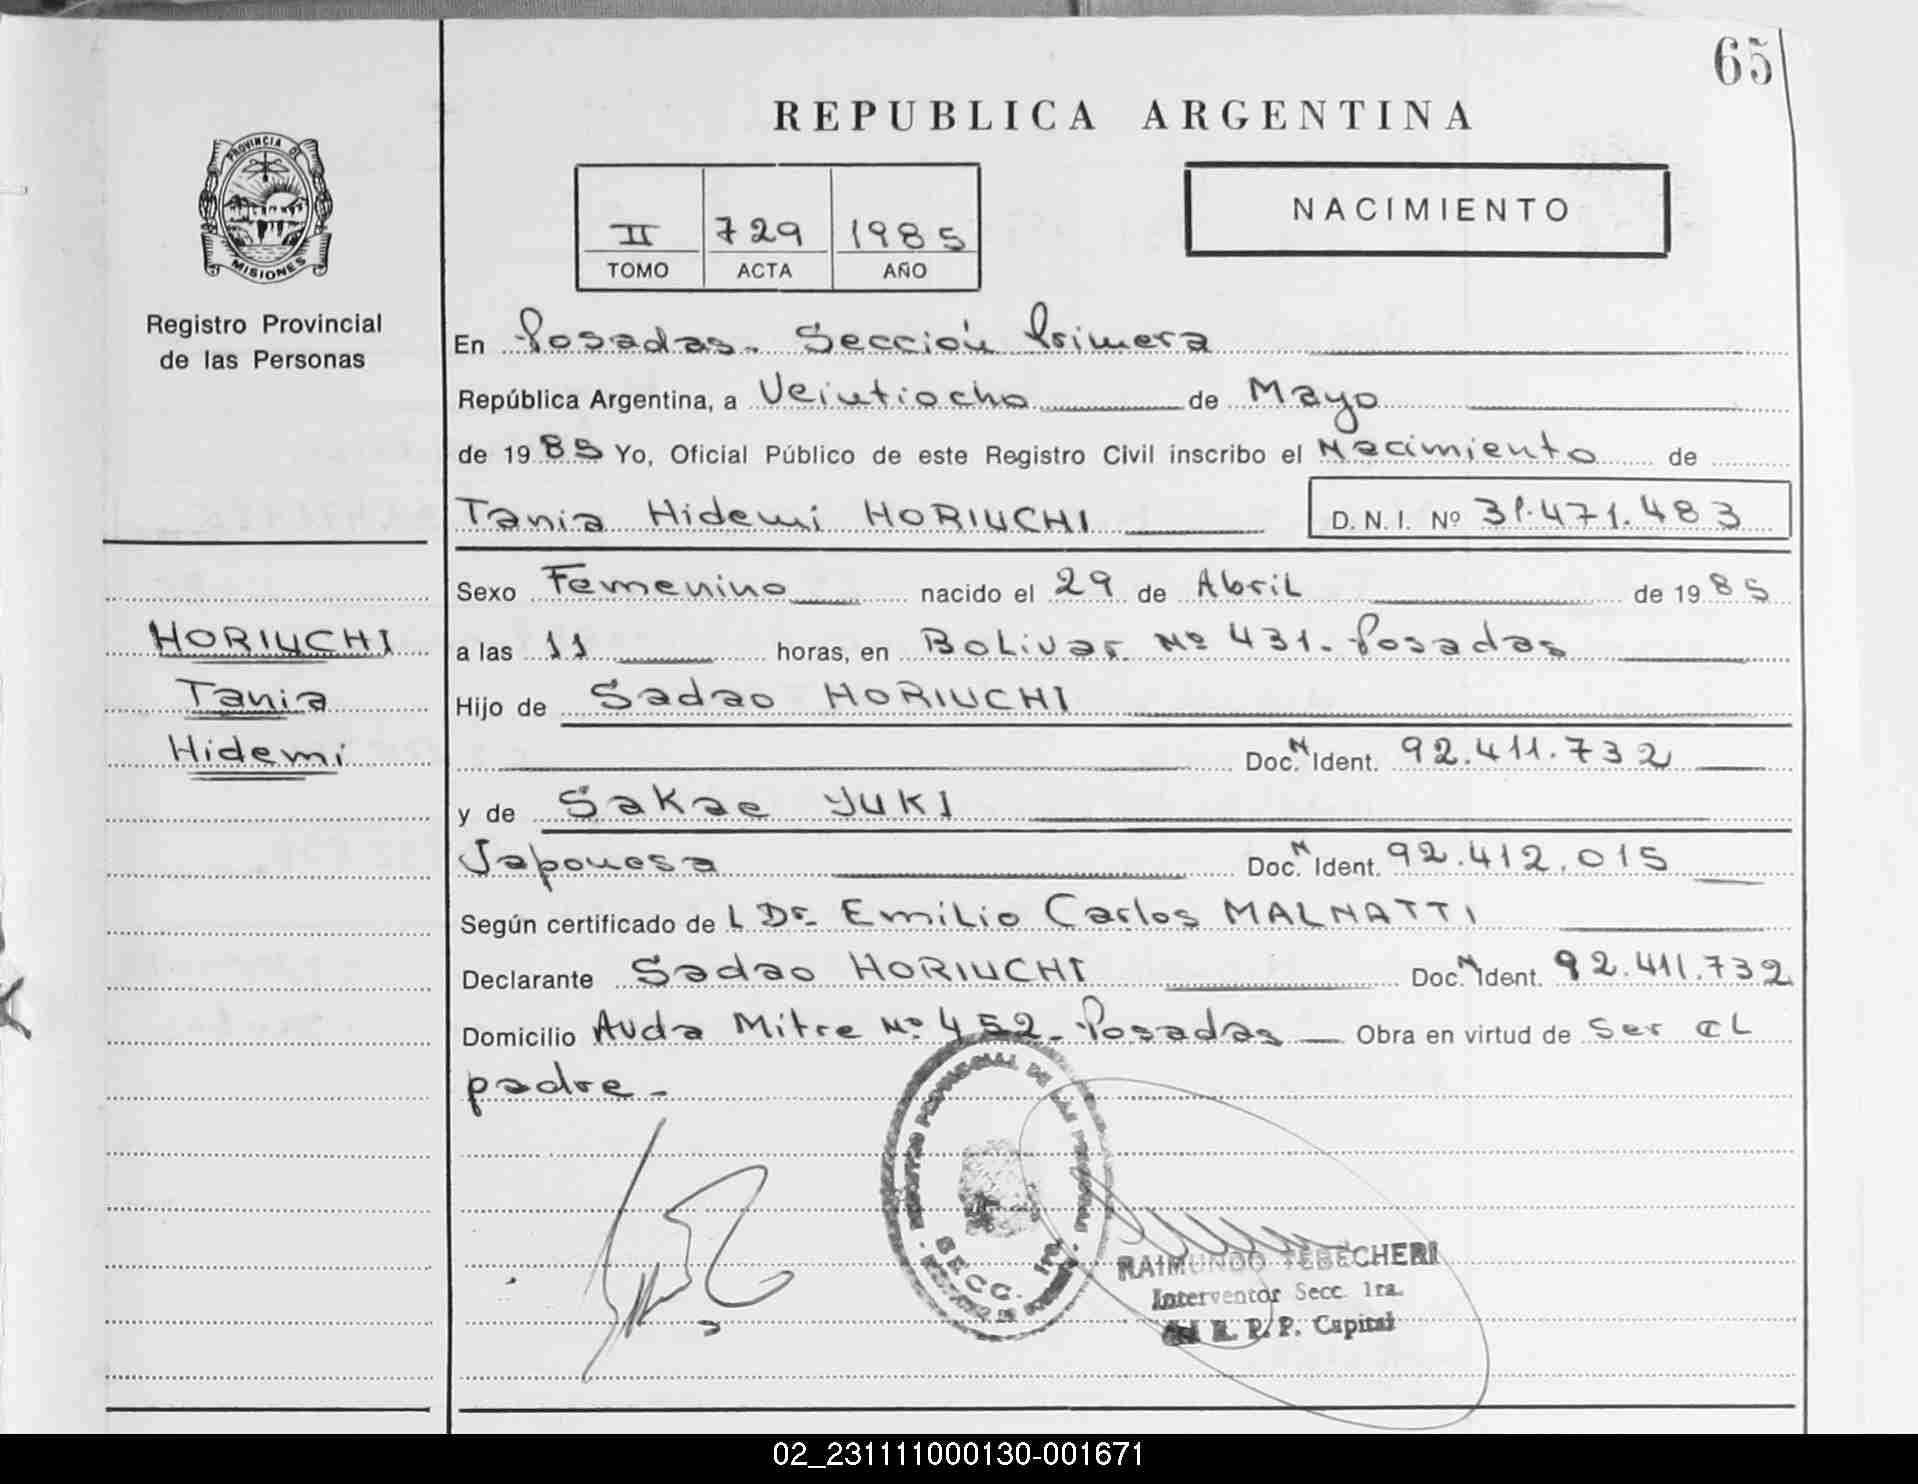 65
REPUBLICA ARGENTINA
PROVINCIA DE
MISIONES
Registro Provincial
de las Personas
II 729 1985
TOMO ACTA AÑO
NACIMIENTO
En Posadas. Sección Primera
República Argentina, a Veintiocho de Mayo
de 1985 Yo, Oficial Público de este Registro Civil inscribo el Nacimiento de
Tania Hidemi HORIUCHI D. N. I. Nº 31.471.483
Sexo Femenino nacido el 29 de Abril de 1985
HORIUCHI
Tania
Hidemi
a las 11 horas, en Bolivar Nº 431. Posadas
Hijo de Sadao HORIUCHI
Doc. N Ident. 92.411.732
y de Sakae YUKI
Japonesa Doc. N Ident. 92.412.015
Según certificado de L Dr. Emilio Carlos MALNATTI
Declarante Sadao HORIUCHI Doc. N Ident. 92.411.732
Domicilio Avda Mitre Nº 452. Posadas Obra en virtud de Ser el
padre.
REGISTRO PROVINCIAL DE LAS PERSONAS
SECC. 1ra.
RAIMUNDO TEBECHERI
Interventor Secc. 1ra.
del R. P. P. Capital
02_231111000130-001671